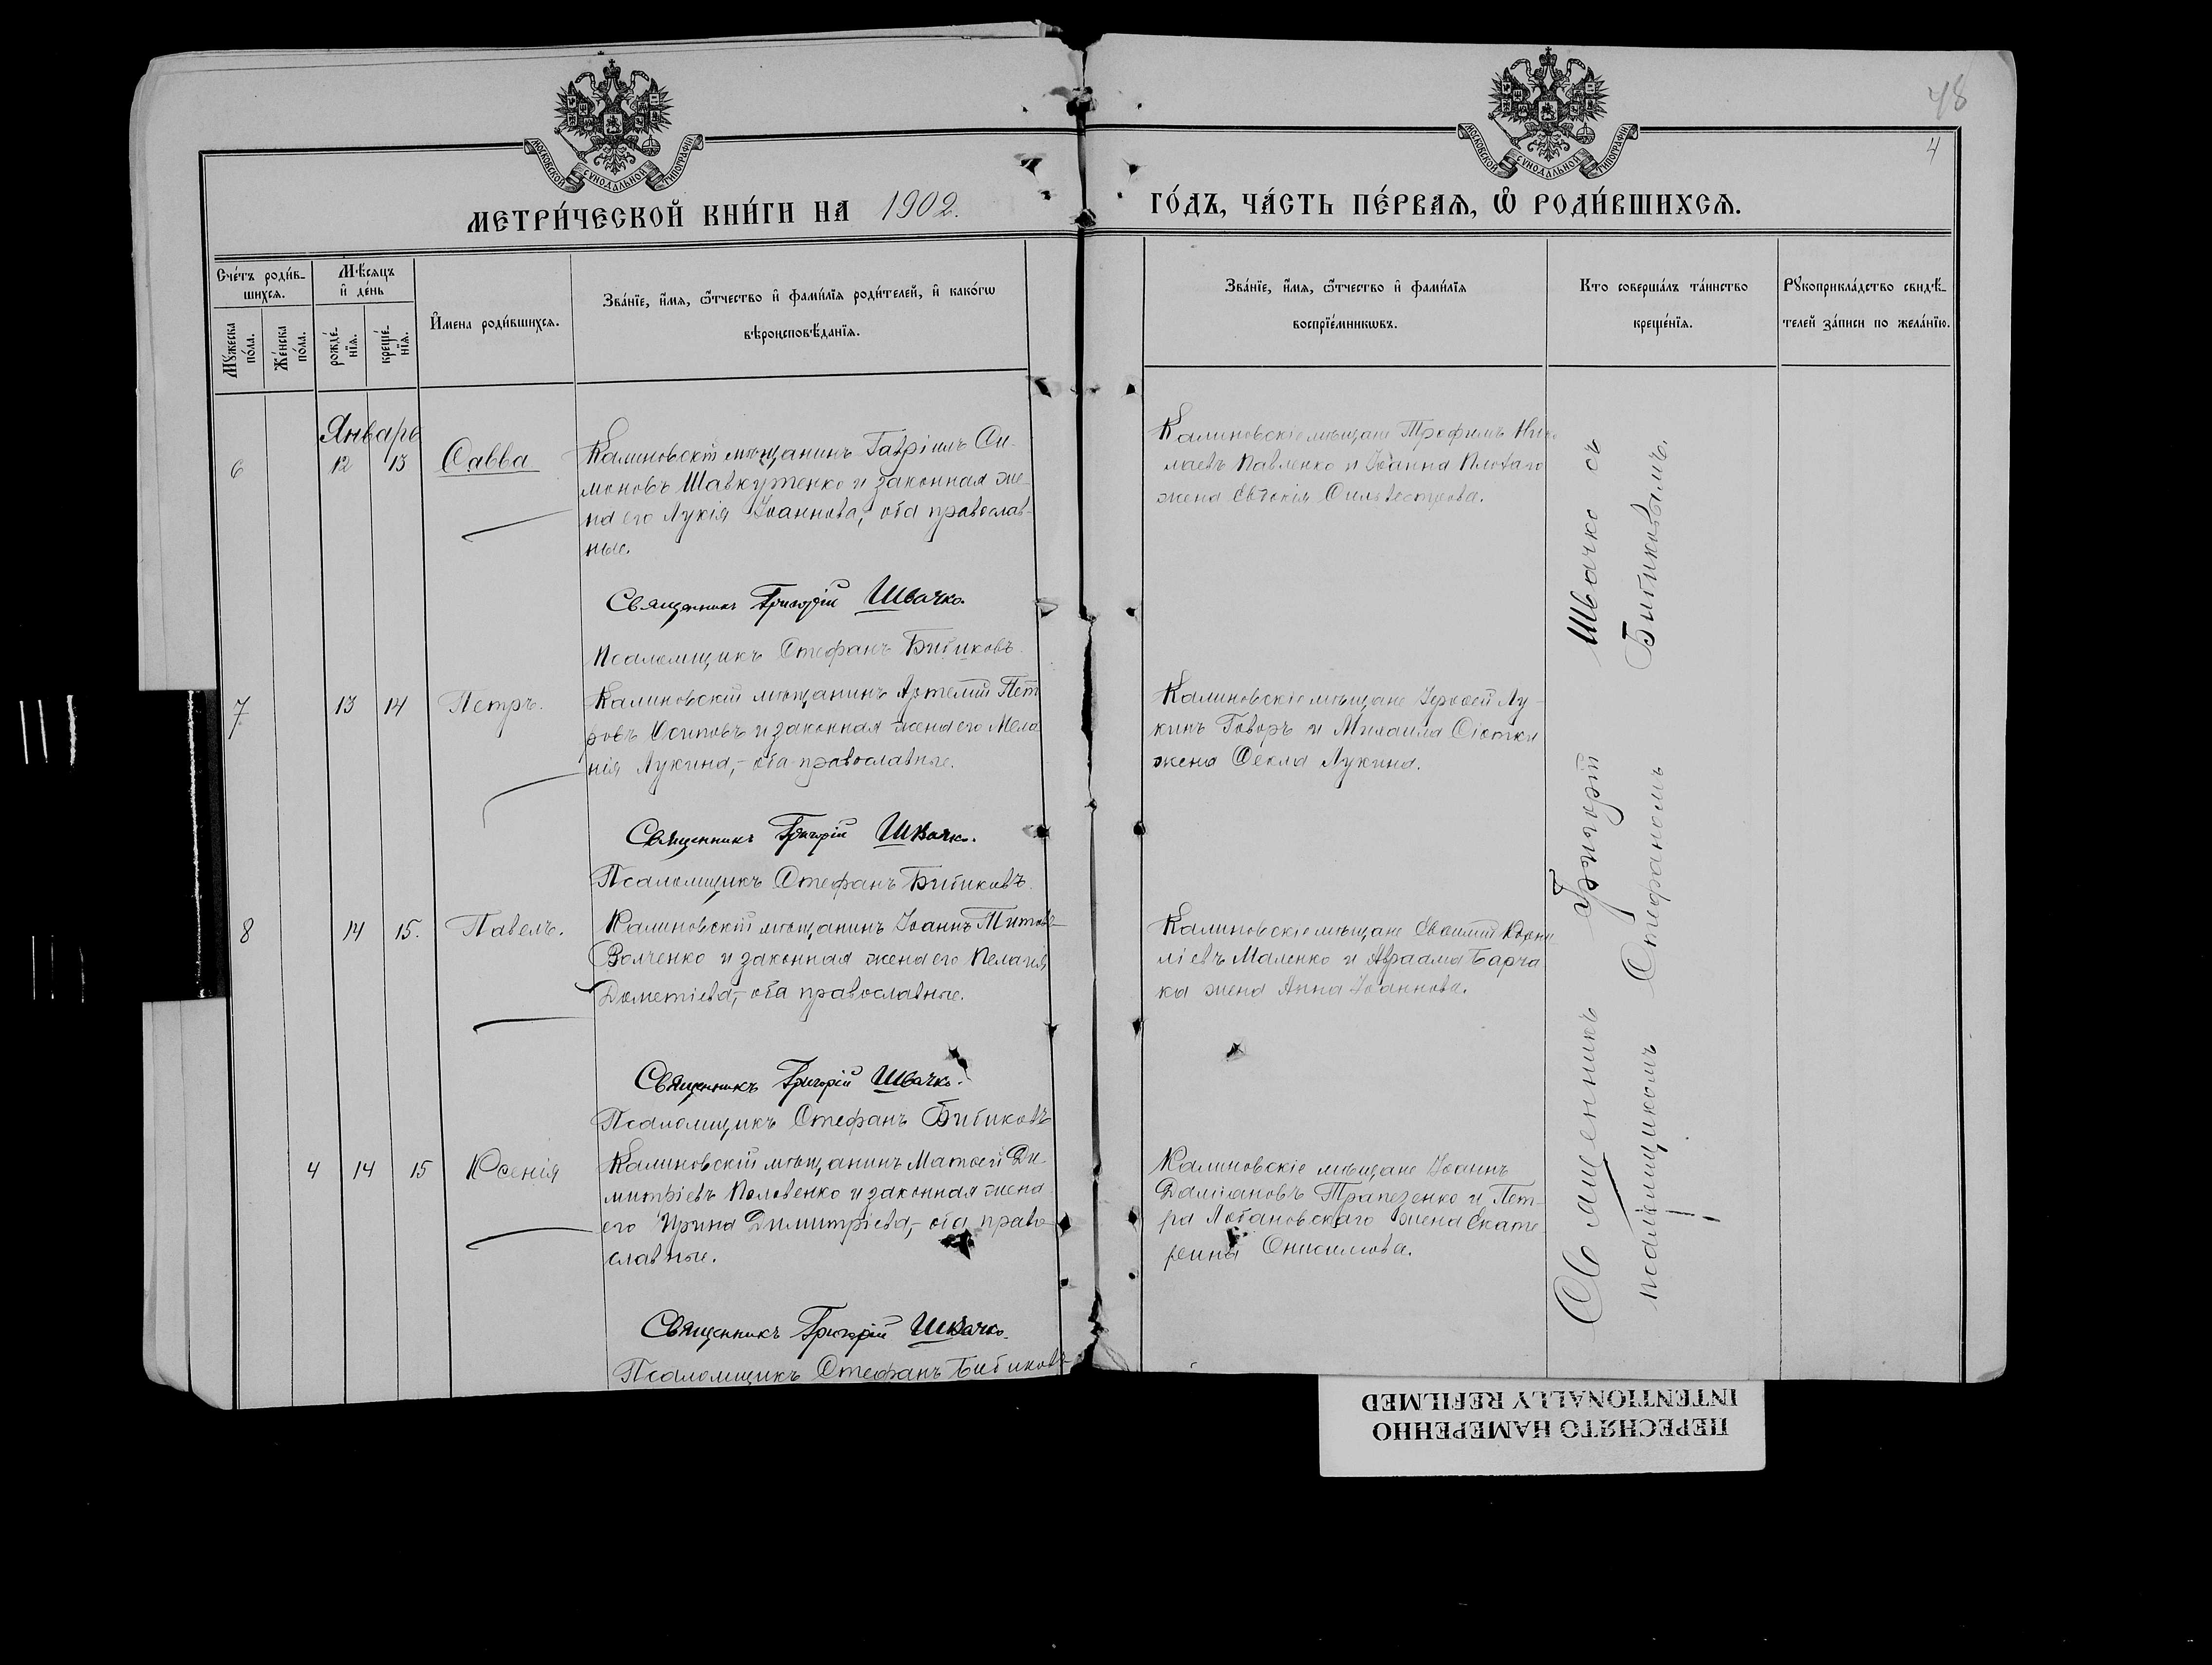 48
4
МОСКОВСКОЙ СѴНОДАЛЬНОЙ ТИПОГРАФІИ
МОСКОВСКОЙ СѴНОДАЛЬНОЙ ТИПОГРАФІИ
МЕТРИ́ЧЕСКОЙ КНИ́ГИ НА 1902. ГО́ДЪ, ЧА́СТЬ ПЕ́РВАѦ, Ѡ РОДИ́ВШИХСѦ.
Сче́тъ роди́в-
шихсѧ.
Мѣ́сѧцъ
и де́нь
Мꙋ́жеска по́ла.
Же́нска по́ла.
рожде́-
нїѧ.
креще́-
нїѧ.
Имена роди́вшихсѧ.
Зва́нїе, и́мѧ, ѻ́тчество и фами́лїѧ роди́телей, и како́гѡ
вѣроисповѣ́данїѧ.
Зва́нїе, и́мѧ, ѻ́тчество и фами́лїѧ
воспрїе́мникѡвъ.
Кто соверша́лъ та́инство
креще́нїѧ.
Рꙋкоприкла́дство свидѣ́-
телей за́писи по жела́нїю.
Январь
6 12 13 Савва
Калиновскій мѣщанинъ Гавріилъ Си-
моновъ Шавкутенко и законная же-
на его Лукія Іоаннова, оба православ-
ные.
Священникъ Григорій Швачко.
Псаломщикъ Стефанъ Бибиковъ.
Калиновскіе мѣщане Трофимъ Нико
лаевъ Павленко и Іоанна
жена Евдокія Сильвестрова.
7 13 14 Петръ.
Калиновскій мѣщанинъ Артемій Пет
ровъ Осиповъ и законная жена его Мела
нія Лукина,- оба православные.
Священникъ Григорій Швачко.
Псаломщикъ Стефанъ Бибиковъ.
Калиновскіе мѣщане Іерофей Лу-
кинъ Говоръ и Михаила
жена Ѳекла Лукина.
8 14 15. Павелъ.
Калиновскій мѣщанинъ Іоаннъ Титовъ
Волченко и законная жена его Пелагія
Дометіева,- оба православные.
Священникъ Григорій Швачко.
Псаломщикъ Стефанъ Бибиковъ
Калиновскіе мѣщане Евѳимій Корни
ліевъ Маленко и Авраама Барча
ка жена Анна Іоаннова.
4 14 15 Ксенія
Калиновскій мѣщанинъ Матѳей Ди-
митріевъ Половенко и законная жена
его Ирина Димитріева,- оба право
славные.
Священникъ Григорій Швачко.
Псаломщикъ Стефанъ Бибиковъ
Калиновскіе мѣщане Іоаннъ
Даміановъ Трапезенко и Пет-
ра Лобановскаго жена Екате
рина Онисимова.
Священникъ Григорій Швачко съ
псаломщикомъ Стефаномъ Бибиковымъ.
ПЕРЕСНЯТО НАМЕРЕННО
INTENTIONALLY REFILMED